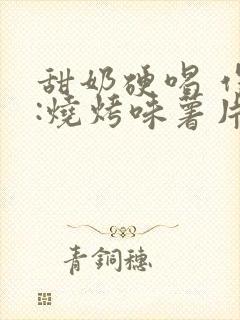 甜奶硬唱
:燒烤味薯片
青銅穗